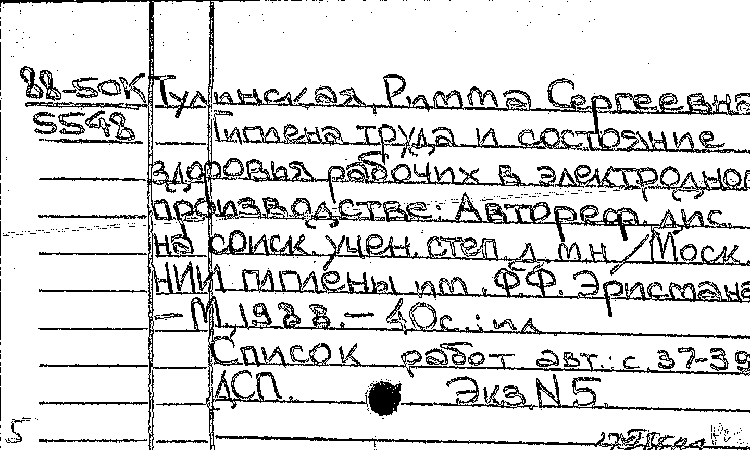 88-50К Тулинская, Римма Сергеевна
5548 Гигиена труда и состояние
здоровья рабочих в электродном
производстве: Автореф. дис.
на соиск. учен. степ. д.м.н. / Моск.
НИИ гигиены им. Ф.Ф. Эрисмана
— М., 1988. — 40с.: ил
Список работ авт.: с. 37-39
ДСП. Экз. N 5.
5